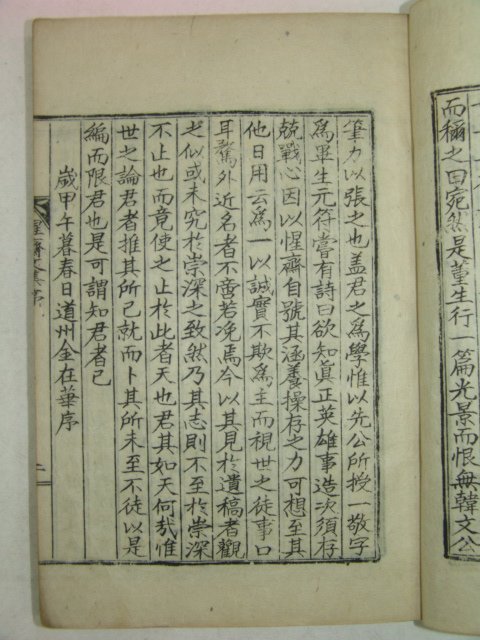 而稱之曰宛然是董生行一篇光景而恨無韓文公
筆力以張之也盖君之爲學惟以先公所授一敬字
爲畢生元符嘗有詩曰欲知眞正英雄事造次須存
兢戰心因以惺齋自號其涵養操存之力可想至其
他日用云爲一以誠實不欺爲主而視世之徒事口
耳騖外近名者不啻若浼焉今以其見於遺稿者觀
之似或未究於崇深之致然乃其志則不至於崇深
不止也而竟使之止於此者天也君其如天何哉惟
世之論君者推其所已就而卜其所未至不徒以是
編而限君也是可謂知君者已
歲甲午暮春日道州金在華序
惺齋文集序
二